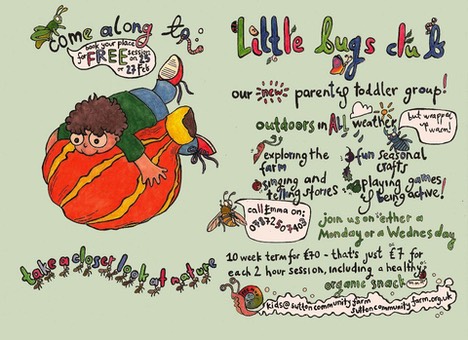 come along to:
book your place
for FREE session
on 25
or 27 Feb
take a closer look at nature
Little bugs club
our new parent & toddler group!
outdoors in ALL weather
but wrapped
up
warm!
exploring the
farm
fun seasonal
crafts
singing and
telling stories
playing games
& being active!
call Emma on:
join us on either a
Monday or a Wednesday
10 week term for £70 - that's just £7 for
each 2 hour session, including a healthy
organic snack
kids@suttoncommunityfarm
suttoncommunityfarm.org.uk